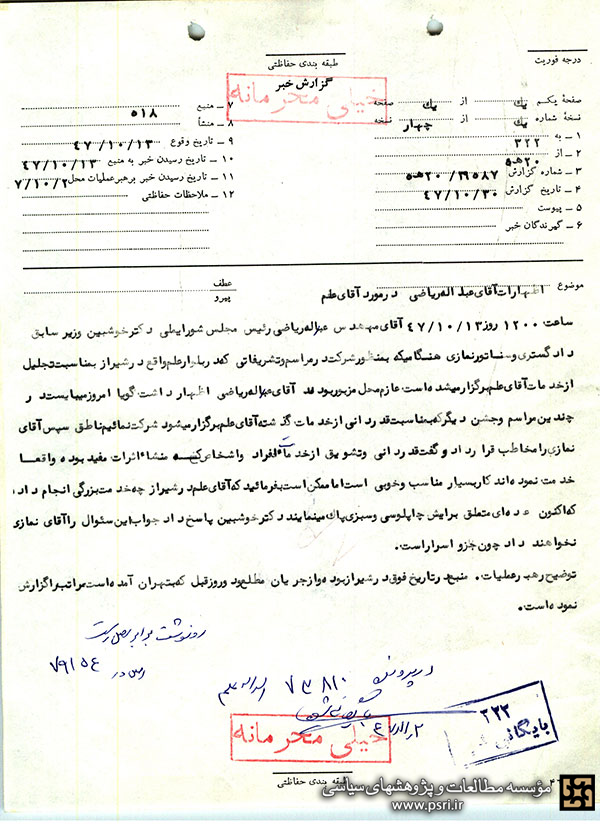 طبقه بندی حفاظتی
درجه فوریت
گزارش خبر
خیلی محرمانه
صفحهٔ یکم یک از یک صفحه
نسخهٔ شماره یک از چهار نسخه
۱ – به ۳۲۲
۲ – از ۲۰ ه‍ ۵
۳ – شماره گزارش ۱۹۵۸۷ / ۲۰ ه‍ ۵
۴ – تاریخ گزارش ۴۷/۱۰/۳۰
۵ – پیوست
۶ – گیرندگان خبر
۷ – منبع ۵۱۸
۸ – منشأ
۹ – تاریخ وقوع ۴۷/۱۰/۱۳
۱۰ – تاریخ رسیدن خبر به منبع ۴۷/۱۰/۱۳
۱۱ – تاریخ رسیدن خبر برهبر عملیات محل ۷/۱۰/۲
۱۲ – ملاحظات حفاظتی
موضوع اظهارات آقای عبداله ریاضی درمورد آقای علم
عطف
پیرو
ساعت ۱۲۰۰ روز ۴۷/۱۰/۱۳ آقای مهندس عبداله ریاضی رئیس مجلس شورایملی دکتر خوشبین وزیر سابق
دادگستری و سناتور نمازی هنگامیکه بمنظور شرکت در مراسم و تشریفاتی که در بلوار علم واقع در شیراز بمناسبت تجلیل
از خدمات آقای علم برگزار میشده است عازم محل مزبور بودند آقای عبداله ریاضی اظهار داشت گویا امروز میبایست در
چندین مراسم و جشن دیگر که بمناسبت قدردانی از خدمات گذشته آقای علم برگزار میشود شرکت نمائیم ناطق سپس آقای
نمازی را مخاطب قرار داد و گفت قدردانی و تشویق از خدمات افراد و اشخاص که منشاء اثرات مفید بوده واقعا
خدمت نموده اند کار بسیار مناسب و خوبی است اما ممکن است بفرمائید که آقای علم در شیراز چه خدمت بزرگی انجام داده
که اکنون عده ای متعلق برایش چاپلوسی و سبزی پاک مینمایند دکتر خوشبین پاسخ داد جواب این سئوال را آقای نمازی
نخواهند داد چون جزو اسرار است.
توضیح رهبر عملیات. منبع در تاریخ فوق در شیراز بوده و از جریان مطلع و دو روز قبل که بتهران آمده است مراتب را گزارش
نموده است.
رونوشت برابر اصل است
اصل در ۷۹۱۵۴
در پرونده ۷۳۸۱۰ اسداله علم
بایگانی شود
۳۲۲
بایگانی شد
خیلی محرمانه
طبقه بندی حفاظتی
مؤسسه مطالعات و پژوهشهای سیاسی
www.psri.ir